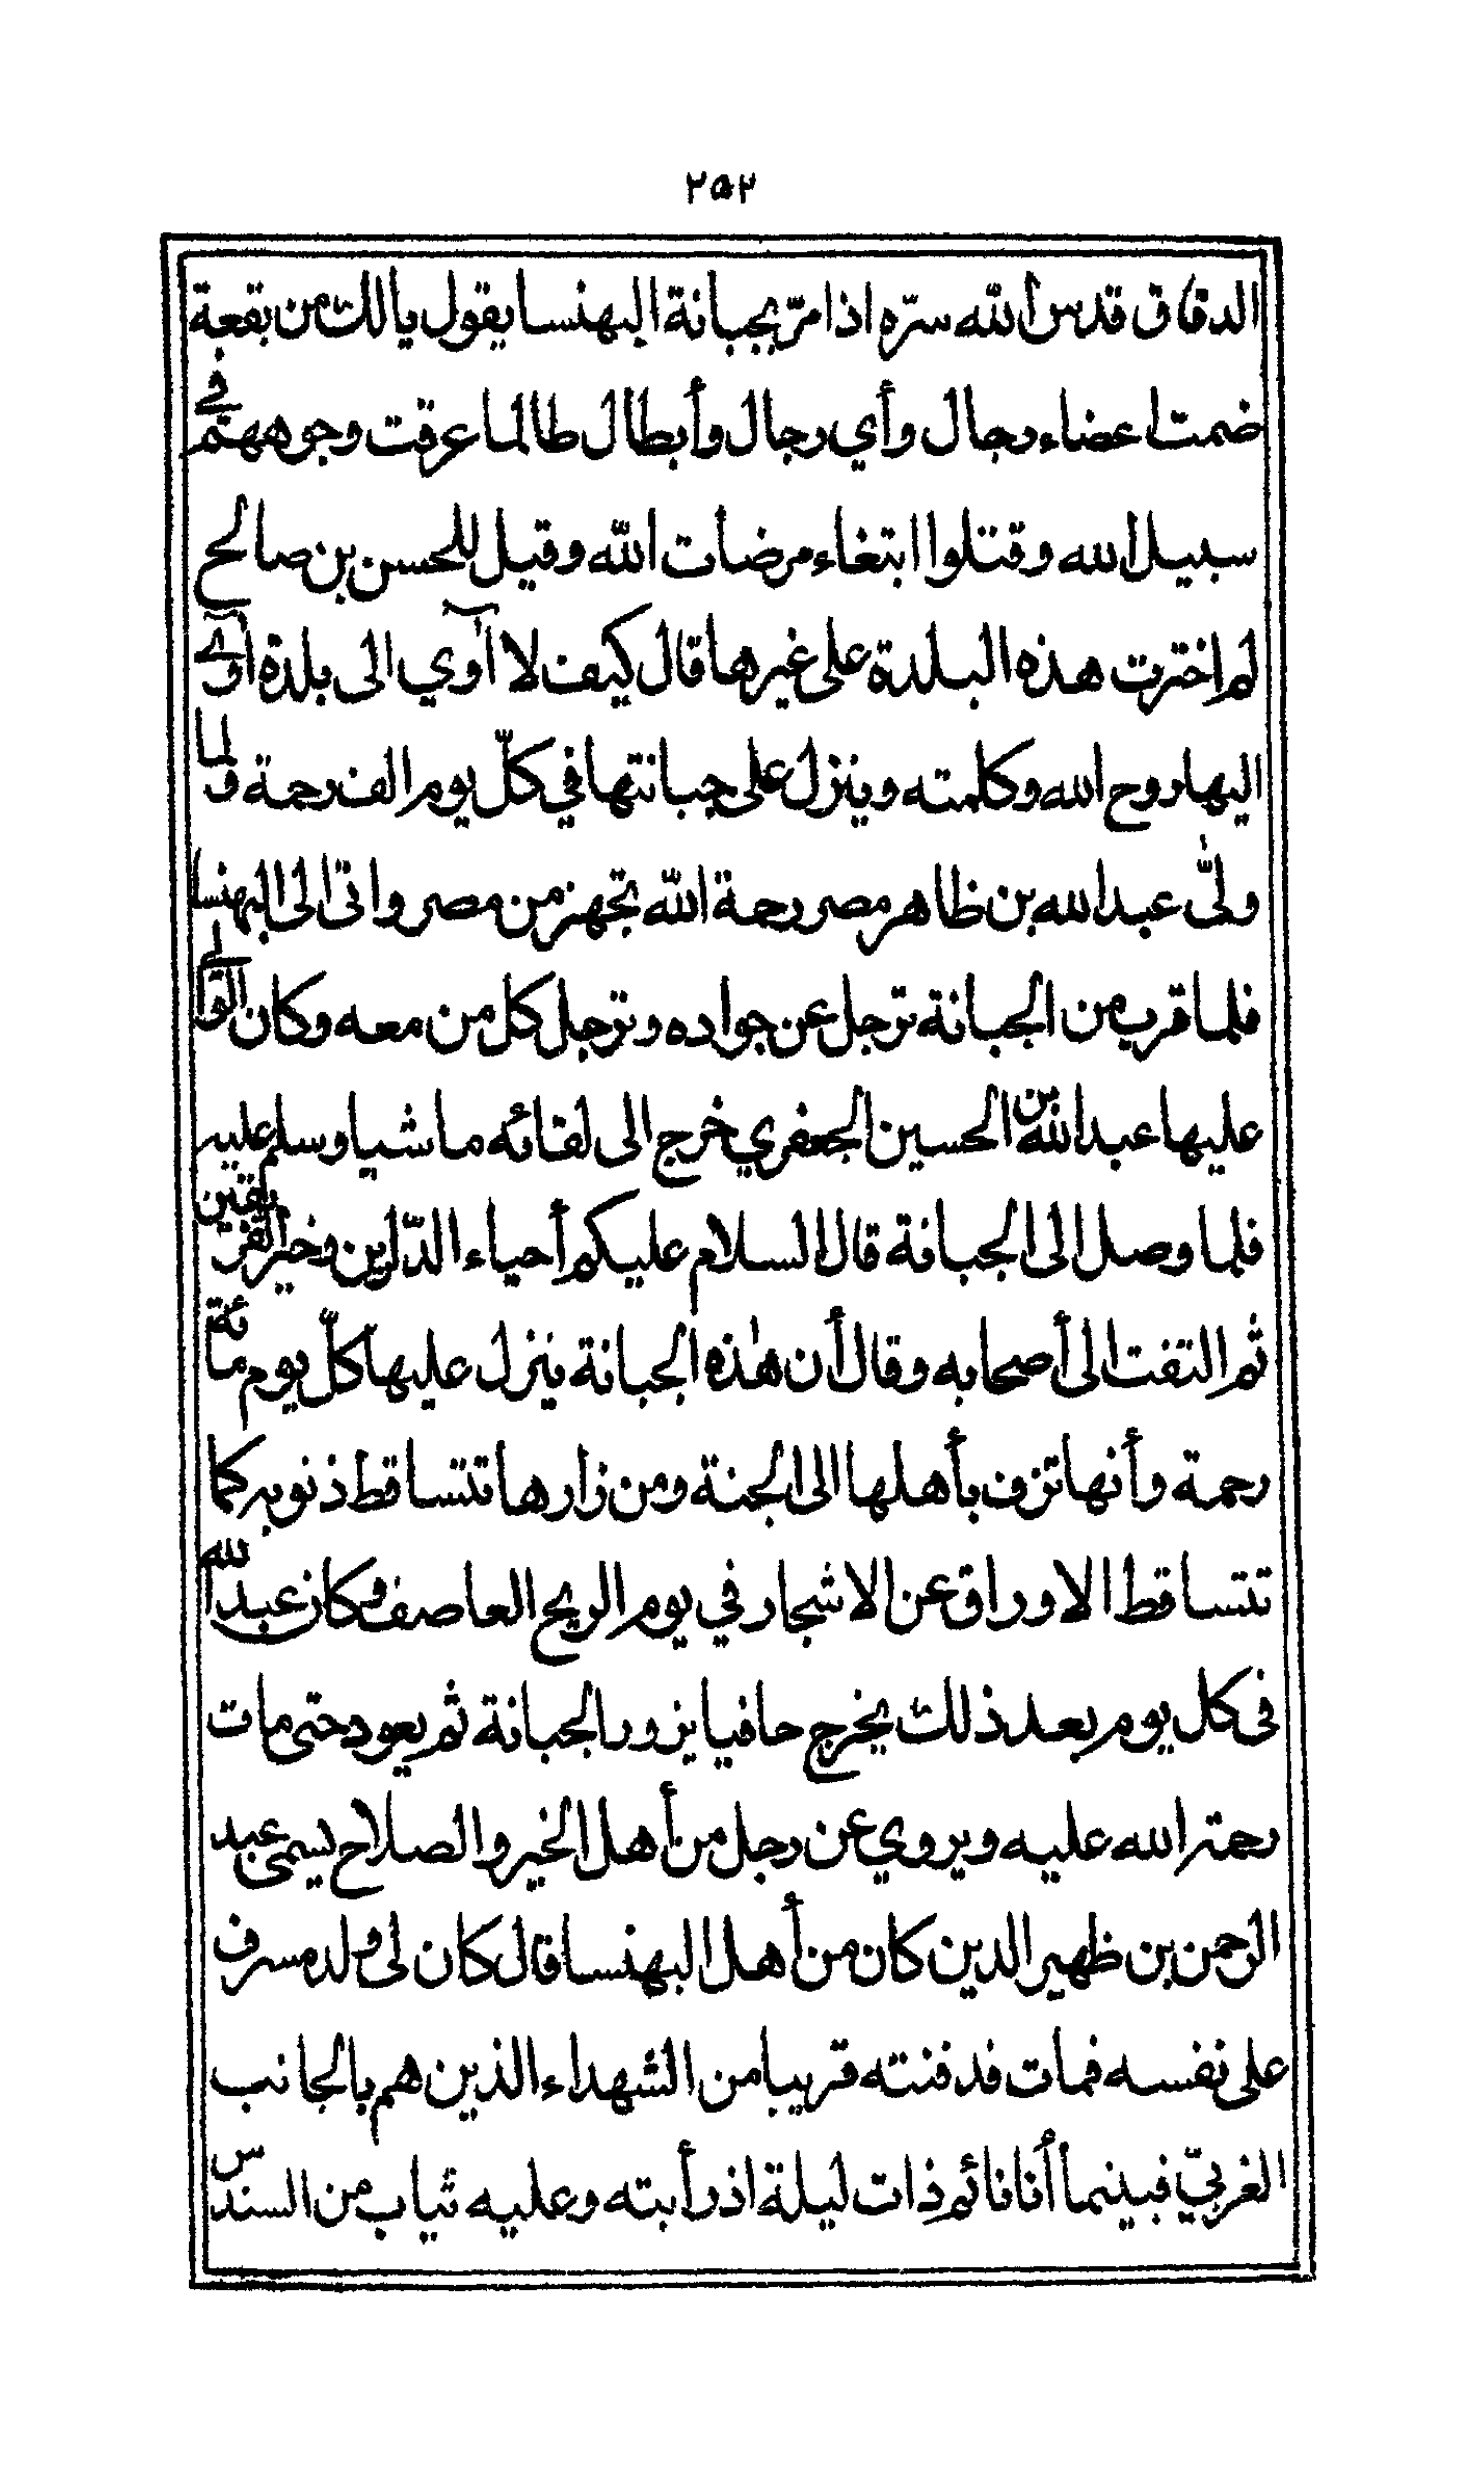 ٢٥٢
الدقاق قدس الله سرّه اذا مرّ بجبانة البهنسا يقول يا لك من بقعة
ضمت اعضاء رجال وأي رجال وأبطال طالما عرقت وجوههم في
سبيل الله وقتلوا ابتغاء مرضات الله وقيل للحسن بن صالح
لم اخترت هذه البلدة على غيرها قال كيف لا آوي الى بلدة اوى
اليها روح الله وكلمته وينزل على جبانتها في كلّ يوم الف رحمة ولما
ولّى عبد الله بن ظاهر مصر رحمة الله تجهز من مصر واتى الى البهنسا
فلما قرب من الجبانة ترجل عن جواده وترجل كل من معه وكان الوالي
عليها عبد الله بن الحسين الجعفري خرج الى لقائه ماشيا وسلم عليه
فلما وصل الى الجبانة قال السلام عليكم أحياء الدّارين وخير الفريقين
ثم التفت الى أصحابه وقال أن هذه الجبانة ينزل عليها كلّ يوم مائة
رحمة وأنها تزف بأهلها الى الجنة ومن زارها تتساقط ذنوبه كما
تتساقط الاوراق عن الاشجار في يوم الريح العاصف فكان عبد الله
فى كل يوم بعد ذلك يخرج حافيا يزور الجبانة ثم يعود حتى مات
رحمة الله عليه ويروي عن رجل من أهل الخير والصلاح يسمى عبد
الرحمن بن ظهير الدين كان من أهل البهنسا قال كان لى ولد مسرف
على نفسه فمات فدفنته قريبا من الشهداء الذين هم بالجانب
الغربيّ فبينما أنا نائم ذات ليلة اذ رأبته وعليه ثياب من السندس